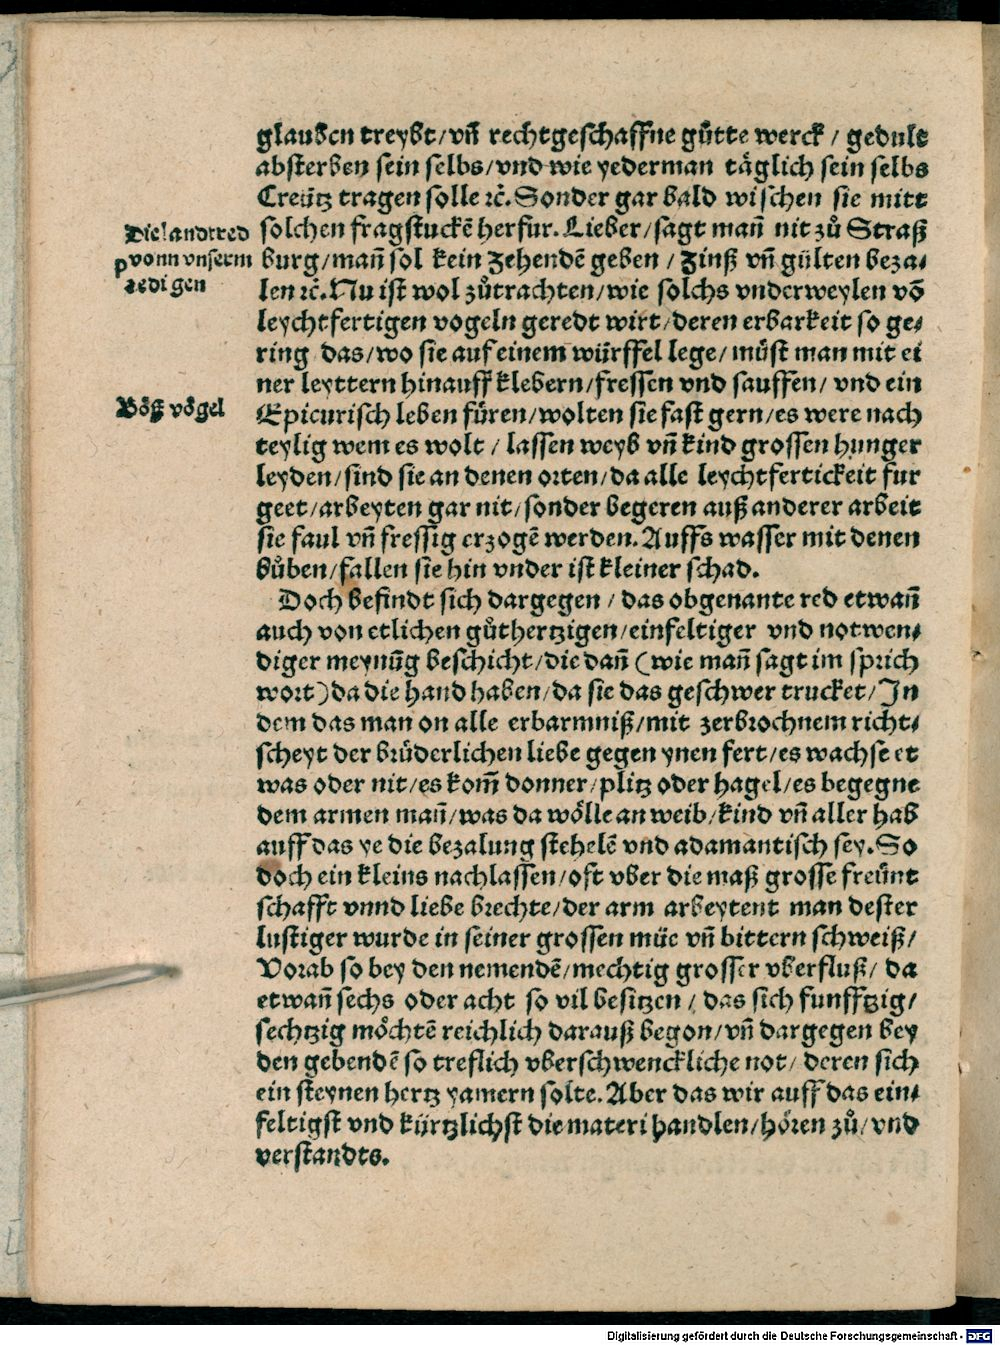 glauben treybt/vn̄ rechtgeschaffne gůtte werck / gedult
absterben sein selbs/vnd wie yederman täglich sein selbs
Creütz tragen solle ꝛc̄. Sonder gar bald wischen sie mitt
Die landtred
vonn vnserm
predigen
solchen fragstuckē herfur. Lieber/sagt man̄ nit zů Straß
burg/man̄ sol kein Zehendē geben / Zinß vn̄ gülten beza⸗
len ꝛc̄. Nu ist wol zůtrachten/wie solchs vnderweylen vō
leychtfertigen vogeln geredt wirt/deren erbarkeit so ge⸗
ring das/wo sie auf einem würffel lege/můst man mit ei
ner leyttern hinauff klebern/fressen vnd sauffen/ vnd ein
Bőß vőgel
Epicurisch leben füren/wolten sie fast gern/es were nach
teylig wem es wolt / lassen weyb vn̄ kind grossen hunger
leyden/sind sie an denen orten/da alle leychtfertickeit fur
geet/arbeyten gar nit/sonder begeren auß anderer arbeit
sie faul vn̄ fressig erzogē werden. Auffs wasser mit denen
bůben/fallen sie hin vnder ist kleiner schad.
Doch befindt sich dargegen / das obgenante red etwan̄
auch von etlichen gůthertzigen/einfeltiger vnd notwen⸗
diger meynūg beschicht/die dan̄ (wie man̄ sagt im sprich
wort) da die hand haben/da sie das geschwer trucket/In
dem das man on alle erbarmniß/mit zerbrochnem richt⸗
scheyt der brüderlichen liebe gegen ynen fert/es wachse et
was oder nit/es kom̄ donner/plitz oder hagel/es begegne
dem armen man̄/was da wőlle an weib/kind vn̄ aller hab
auff das ye die bezalung stehelē vnd adamantisch sey. So
doch ein kleins nachlassen/oft vber die maß grosse freünt
schafft vnnd liebe brechte/der arm arbeytent man dester
lustiger wurde in seiner grossen müe vn̄ bittern schweiß/
Vorab so bey den nemendē/mechtig grosser vberfluß/ da
etwan̄ sechs oder acht so vil besitzen / das sich funfftzig/
sechtzig mőchtē reichlich darauß begon/vn̄ dargegen bey
den gebendē so treflich vberschwenckliche not/ deren sich
ein steynen hertz yamern solte. Aber das wir auff das ein⸗
feltigst vnd kürtzlichst die materi handlen/hőren zů/vnd
verstandts.
Digitalisierung gefördert durch die Deutsche Forschungsgemeinschaft - DFG